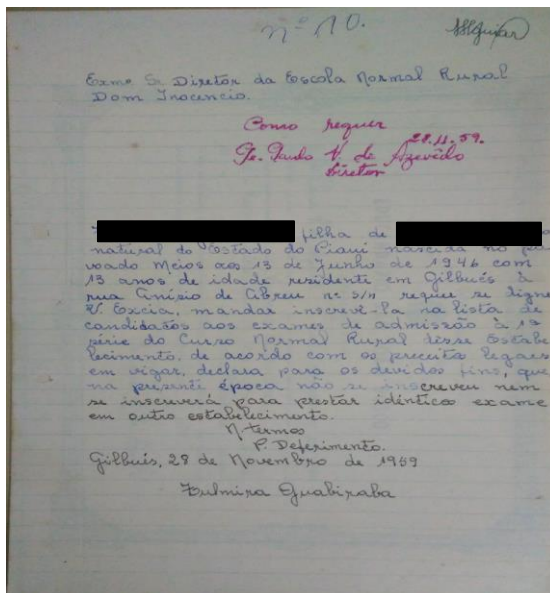 nº 10.
Exmo Sr. Diretor da Escola Normal Rural
Dom Inocencio.
Como requer
28.11.59.
Pe. Paulo V. de Azevêdo
Diretor
filha de
natural do Estado do Piauí nascida no po
voado Meios aos 13 de Junho de 1946 com
13 anos de idade residenti em Gilbués à
rua de Abreu nº s/n requer se digne
V. Excia, mandar inscrevê-la na lista de
candidatos aos exames de admissão à 1ª
série do Curso Normal Rural desse Estabe
lecimento, de acordo com os preceitos legaes
em vigar, declara para os devidos fins, que
na presente época não se inscreveu nem
se inscreverá para prestar idêntico exame
em outro estabelecimento.
N. termos
P. Deferimento.
Gilbués, 28 de Novembro de 1959
Zulmira Guabiraba